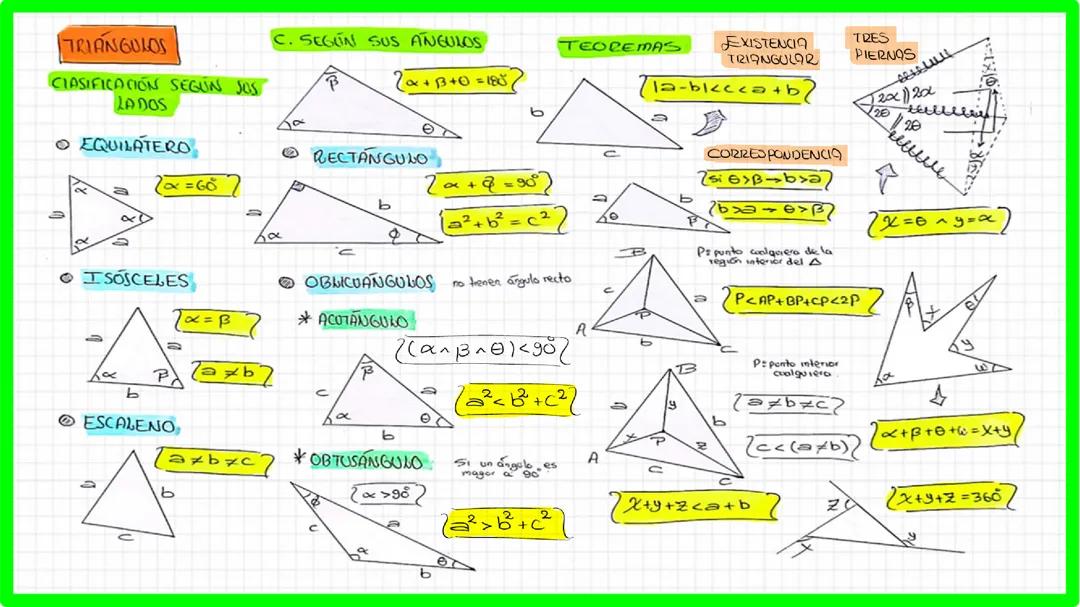 TRIÁNGULOS
CLASIFICACIÓN SEGÚN SUS
LADOS
EQUILÁTERO
α = 60°
a
a
a
α
α
α
ISÓSCELES
α = β
a ≠ b
a
a
b
α
β
ESCALENO
a ≠ b ≠ c
a
b
c
C. SEGÚN SUS ÁNGULOS
α + β + θ = 180°
β
α
θ
RECTÁNGULO
α + φ = 90°
a² + b² = c²
a
b
c
α
φ
OBLICUÁNGULOS no tienen ángulo recto
* ACUTÁNGULO
(α ∧ β ∧ θ) < 90°
a² < b² + c²
β
c
a
α
θ
b
* OBTUSÁNGULO
Si un ángulo es
mayor a 90°
α > 90°
a² > b² + c²
φ
c
a
α
θ
b
TEOREMAS
EXISTENCIA
TRIANGULAR
|a-b| < c < a + b
b
a
c
CORRESPONDENCIA
si θ > β → b > a
b > a → θ > β
a
b
θ
β
P = punto cualquiera de la
región interior del Δ
P < AP + BP + CP < 2P
B
c
a
P
A
b
C
P = punto interior
cualquiera
a ≠ b ≠ c
c < (a ≠ b)
B
a
y
b
P
x
z
A
c
C
x + y + z < a + b
TRES
PIERNAS
2α
2α
2θ
2θ
x
θ
x = θ ∧ y = α
β
x
θ
y
α
ω
α + β + θ + ω = x + y
x + y + z = 360°
z
x
y